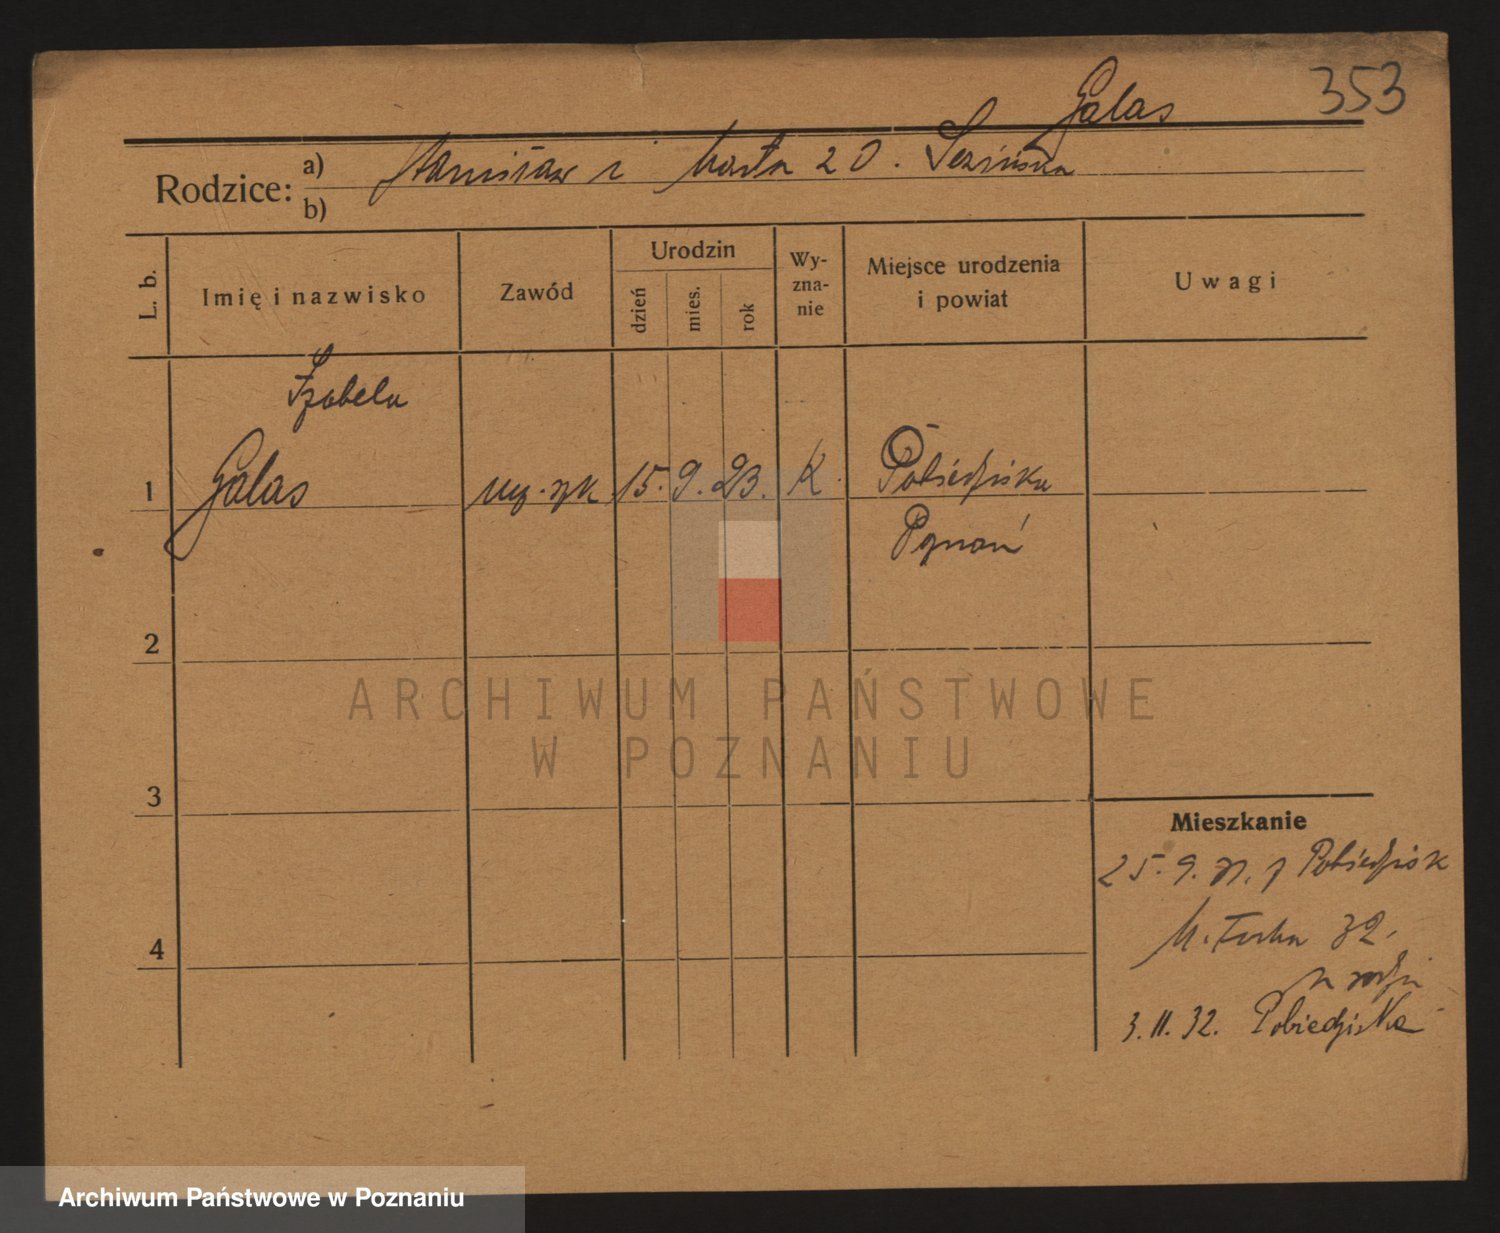 353
Galas
Rodzice: a) Stanisław i Marta z D.
b)
L. b.
Imię i nazwisko
Zawód
Urodzin
dzień
mies.
rok
Wy-
zna-
nie
Miejsce urodzenia
i powiat
Uwagi
Izabela
1 Galas 15. 9. 23. K. Pobiedziska
Poznań
2
3
4
Mieszkanie
25. 9. Pobiedzisk
32.
3. 11. 32. Pobiedziska
ARCHIWUM PAŃSTWOWE
W POZNANIU
Archiwum Państwowe w Poznaniu